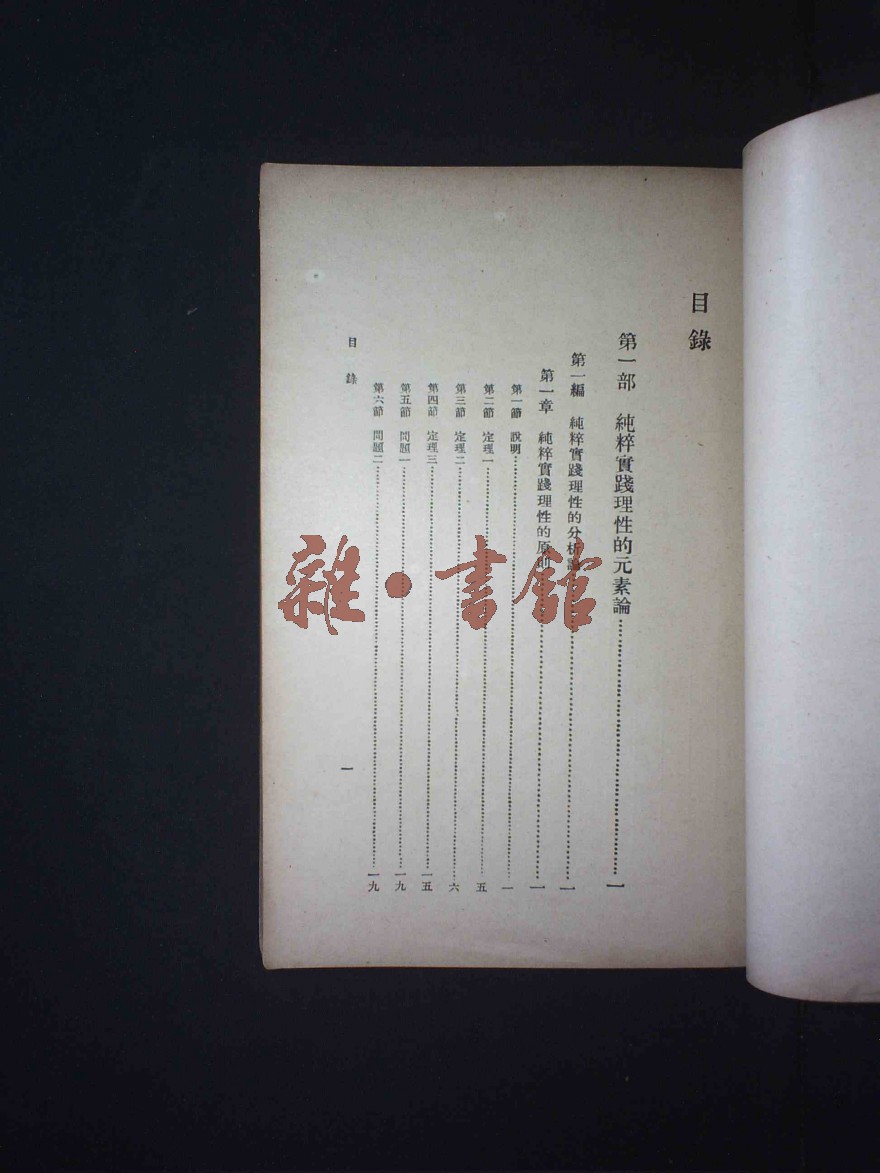 目錄
第一部　純粹實踐理性的元素論……一
第一編　純粹實踐理性的分析論……一
第一章　純粹實踐理性的原則……一
第一節　說明……一
第二節　定理一……五
第三節　定理二……六
第四節　定理三……一五
第五節　問題一……一九
第六節　問題二……一九
目錄
一
雜·書館